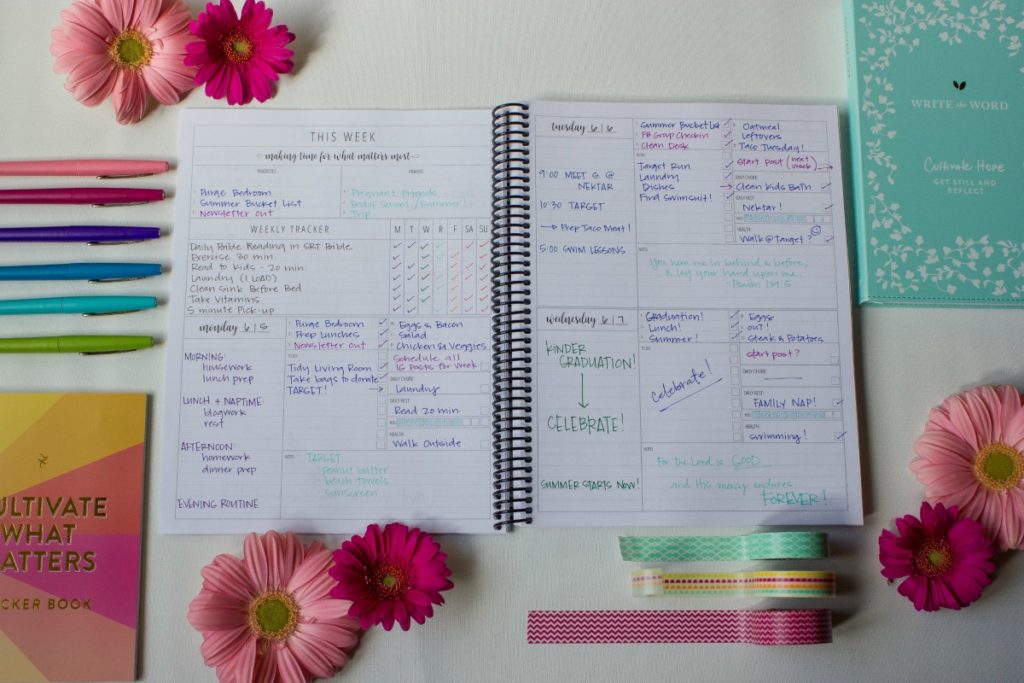 THIS WEEK
making time for what matters most
PRIORITIES
PRAYERS
Purge Bedroom
Summer Bucket List
Newsletter out
Pregnant Friends
Trip
WEEKLY TRACKER
M T W R F SA SU
Daily Bible Reading in SRT Bible
Exercise 30 min.
Read to kids - 20 min
Laundry (1 LOAD)
Clean Sink Before Bed
Take Vitamins
5 minute Pick-up
monday 6|5
MORNING:
housework
lunch prep
LUNCH + NAPTIME:
blogwork
rest
AFTERNOON:
homework
dinner prep
EVENING ROUTINE
Purge Bedroom
Prep Lunches
Newsletter out
TO DO
Tidy Living Room
Take bags to donate
TARGET!
Eggs & Bacon
Salad
Chicken & Veggies
Schedule all
16 Posts for Week
DAILY CHORE
Laundry
DAILY REST
Read 20 min
HEALTH
Walk Outside
NOTES
TARGET
peanut butter
beach towels
sunscreen
tuesday 6|6
9:00 MEET G. @
NEKTAR
10:30 TARGET
→ Prep Taco Meat!
5:00 SWIM LESSONS
Summer Bucket List
FB Group Checkin
Clean Desk
TO DO
Target Run
Laundry
Dishes
Find Swimsuit!
Oatmeal
Leftovers
Taco Tuesday!
Start post (next week)
DAILY CHORE
Clean Kids Bath
DAILY REST
Nektar!
HEALTH
Walk @ Target?
NOTES
You hem me in behind & before,
& lay your hand upon me.
- Psalm 139:5
wednesday 6|7
KINDER
GRADUATION!
CELEBRATE!
SUMMER STARTS NOW!
Graduation!
Lunch!
Summer!
TO DO
Celebrate!
Eggs
OUT!
Steak & Potatoes
start post?
DAILY CHORE
DAILY REST
FAMILY NAP!
HEALTH
Swimming!
NOTES
For the Lord is GOOD
and His mercy endures
FOREVER!
WRITE the WORD
Cultivate Hope
GET STILL AND
REFLECT
ULTIVATE
WHAT
ATTERS
CKER BOOK